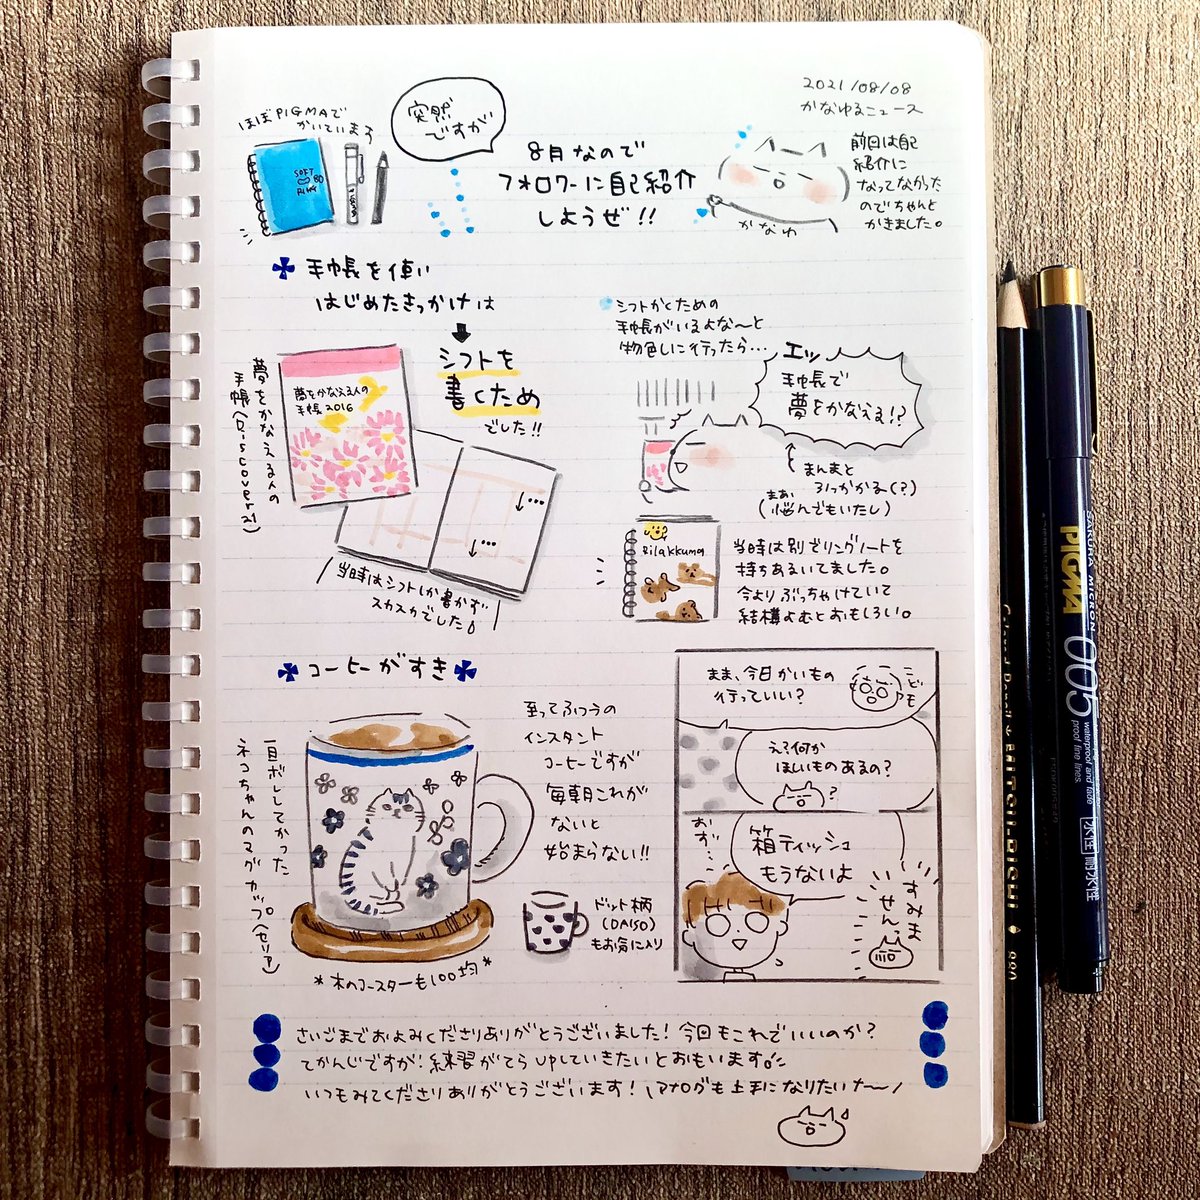 2021/08/08
かなゆるニュース
ほぼPIGMAで
かいています
突然
ですが
8月なので
フォロワーに自己紹介
しようぜ!!
前回は自己
紹介に
なってなかった
のでちゃんと
かきました。
かなゆ
SOFT
手帳を使い
はじめたきっかけは
シフトを
書くため
でした!!
夢をかなえる人の
手帳(Discover21)
夢をかなえる人の
手帳2016
当時はシフトしか書かず
スカスカでした
シフトかくための
手帳がいるよな〜と
物色しに行ったら…
エッ
手帳で
夢をかなえる!?
まんまと
ひっかかる(?)
(まあ、悩んでもいたし)
Rilakkuma
当時は別でリングノートを
持ちあるいてました。
今よりぶっちゃけていて
結構よむとおもしろい。
コーヒーがすき
一目ボレしてかった
ネコちゃんのマグカップ(セリア)
至ってふつうの
インスタント
コーヒーですが
毎朝これが
ないと
始まらない!!
ドット柄
(DAISO)
もお気に入り
*木のコースターも100均*
まま、今日かいもの
行っていい?
こども
え?何か
ほしいものあるの?
?
おず…
箱ティッシュ
もうないよ
すみま
せんっ
さいごまでおよみくださりありがとうございました!今回もこれでいいのか?
てかんじですが!練習がてらUPしていきたいとおもいます
いつもみてくださりありがとうございます!アナログも上手になりたいナ〜
SAKURA MICRON
PIGMA
005
waterproof and fade
proof fine lines.
水性
耐水性
MITSUBISHI
890